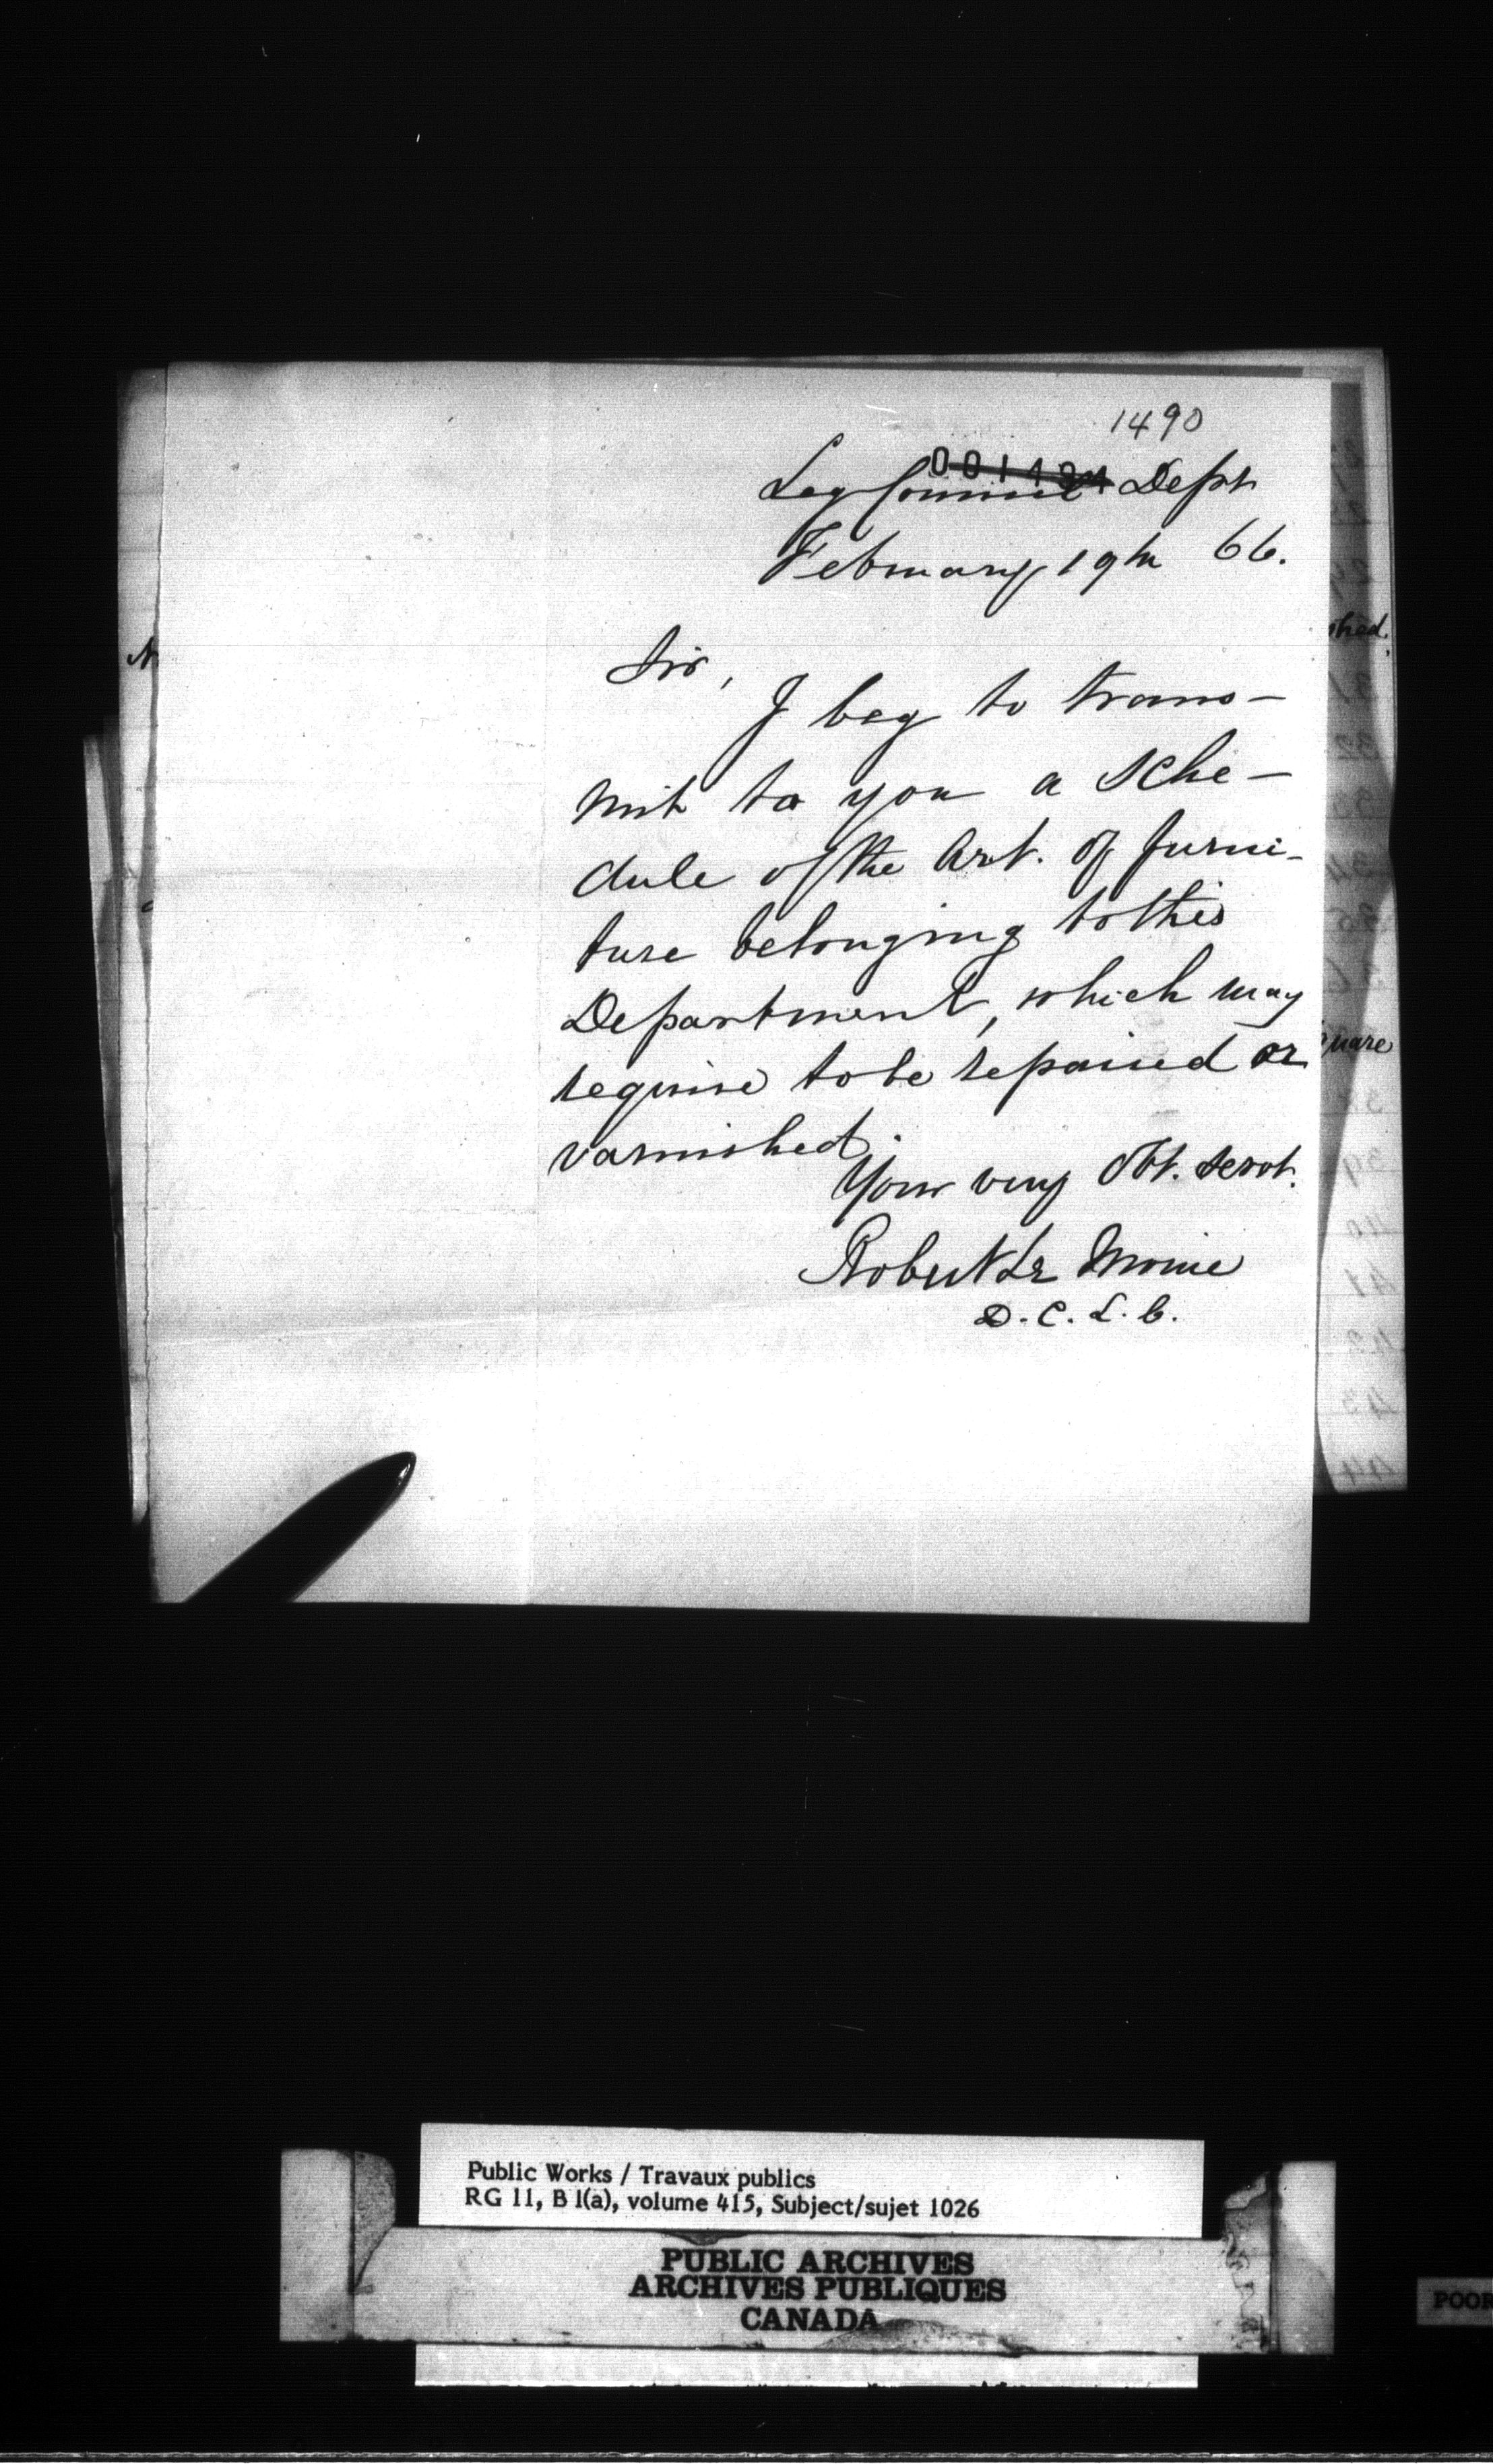 1490
Leg Council Dept
February 19th 66.
Sir,
I beg to trans-
mit to you a sche-
dule of the Art. of furni-
ture belonging to this
Department, which may
require to be repaired or
varnished.
Your very Obt. servt.
Robert Le Moine
D. C. L. C.
shed.
quare
Public Works / Travaux publics
RG 11, B 1(a), volume 415, Subject/sujet 1026
PUBLIC ARCHIVES
ARCHIVES PUBLIQUES
CANADA
POOR